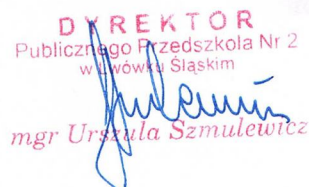 DYREKTOR
Publicznego Przedszkola Nr 2
w Lwówku Śląskim
mgr Urszula Szmulewicz